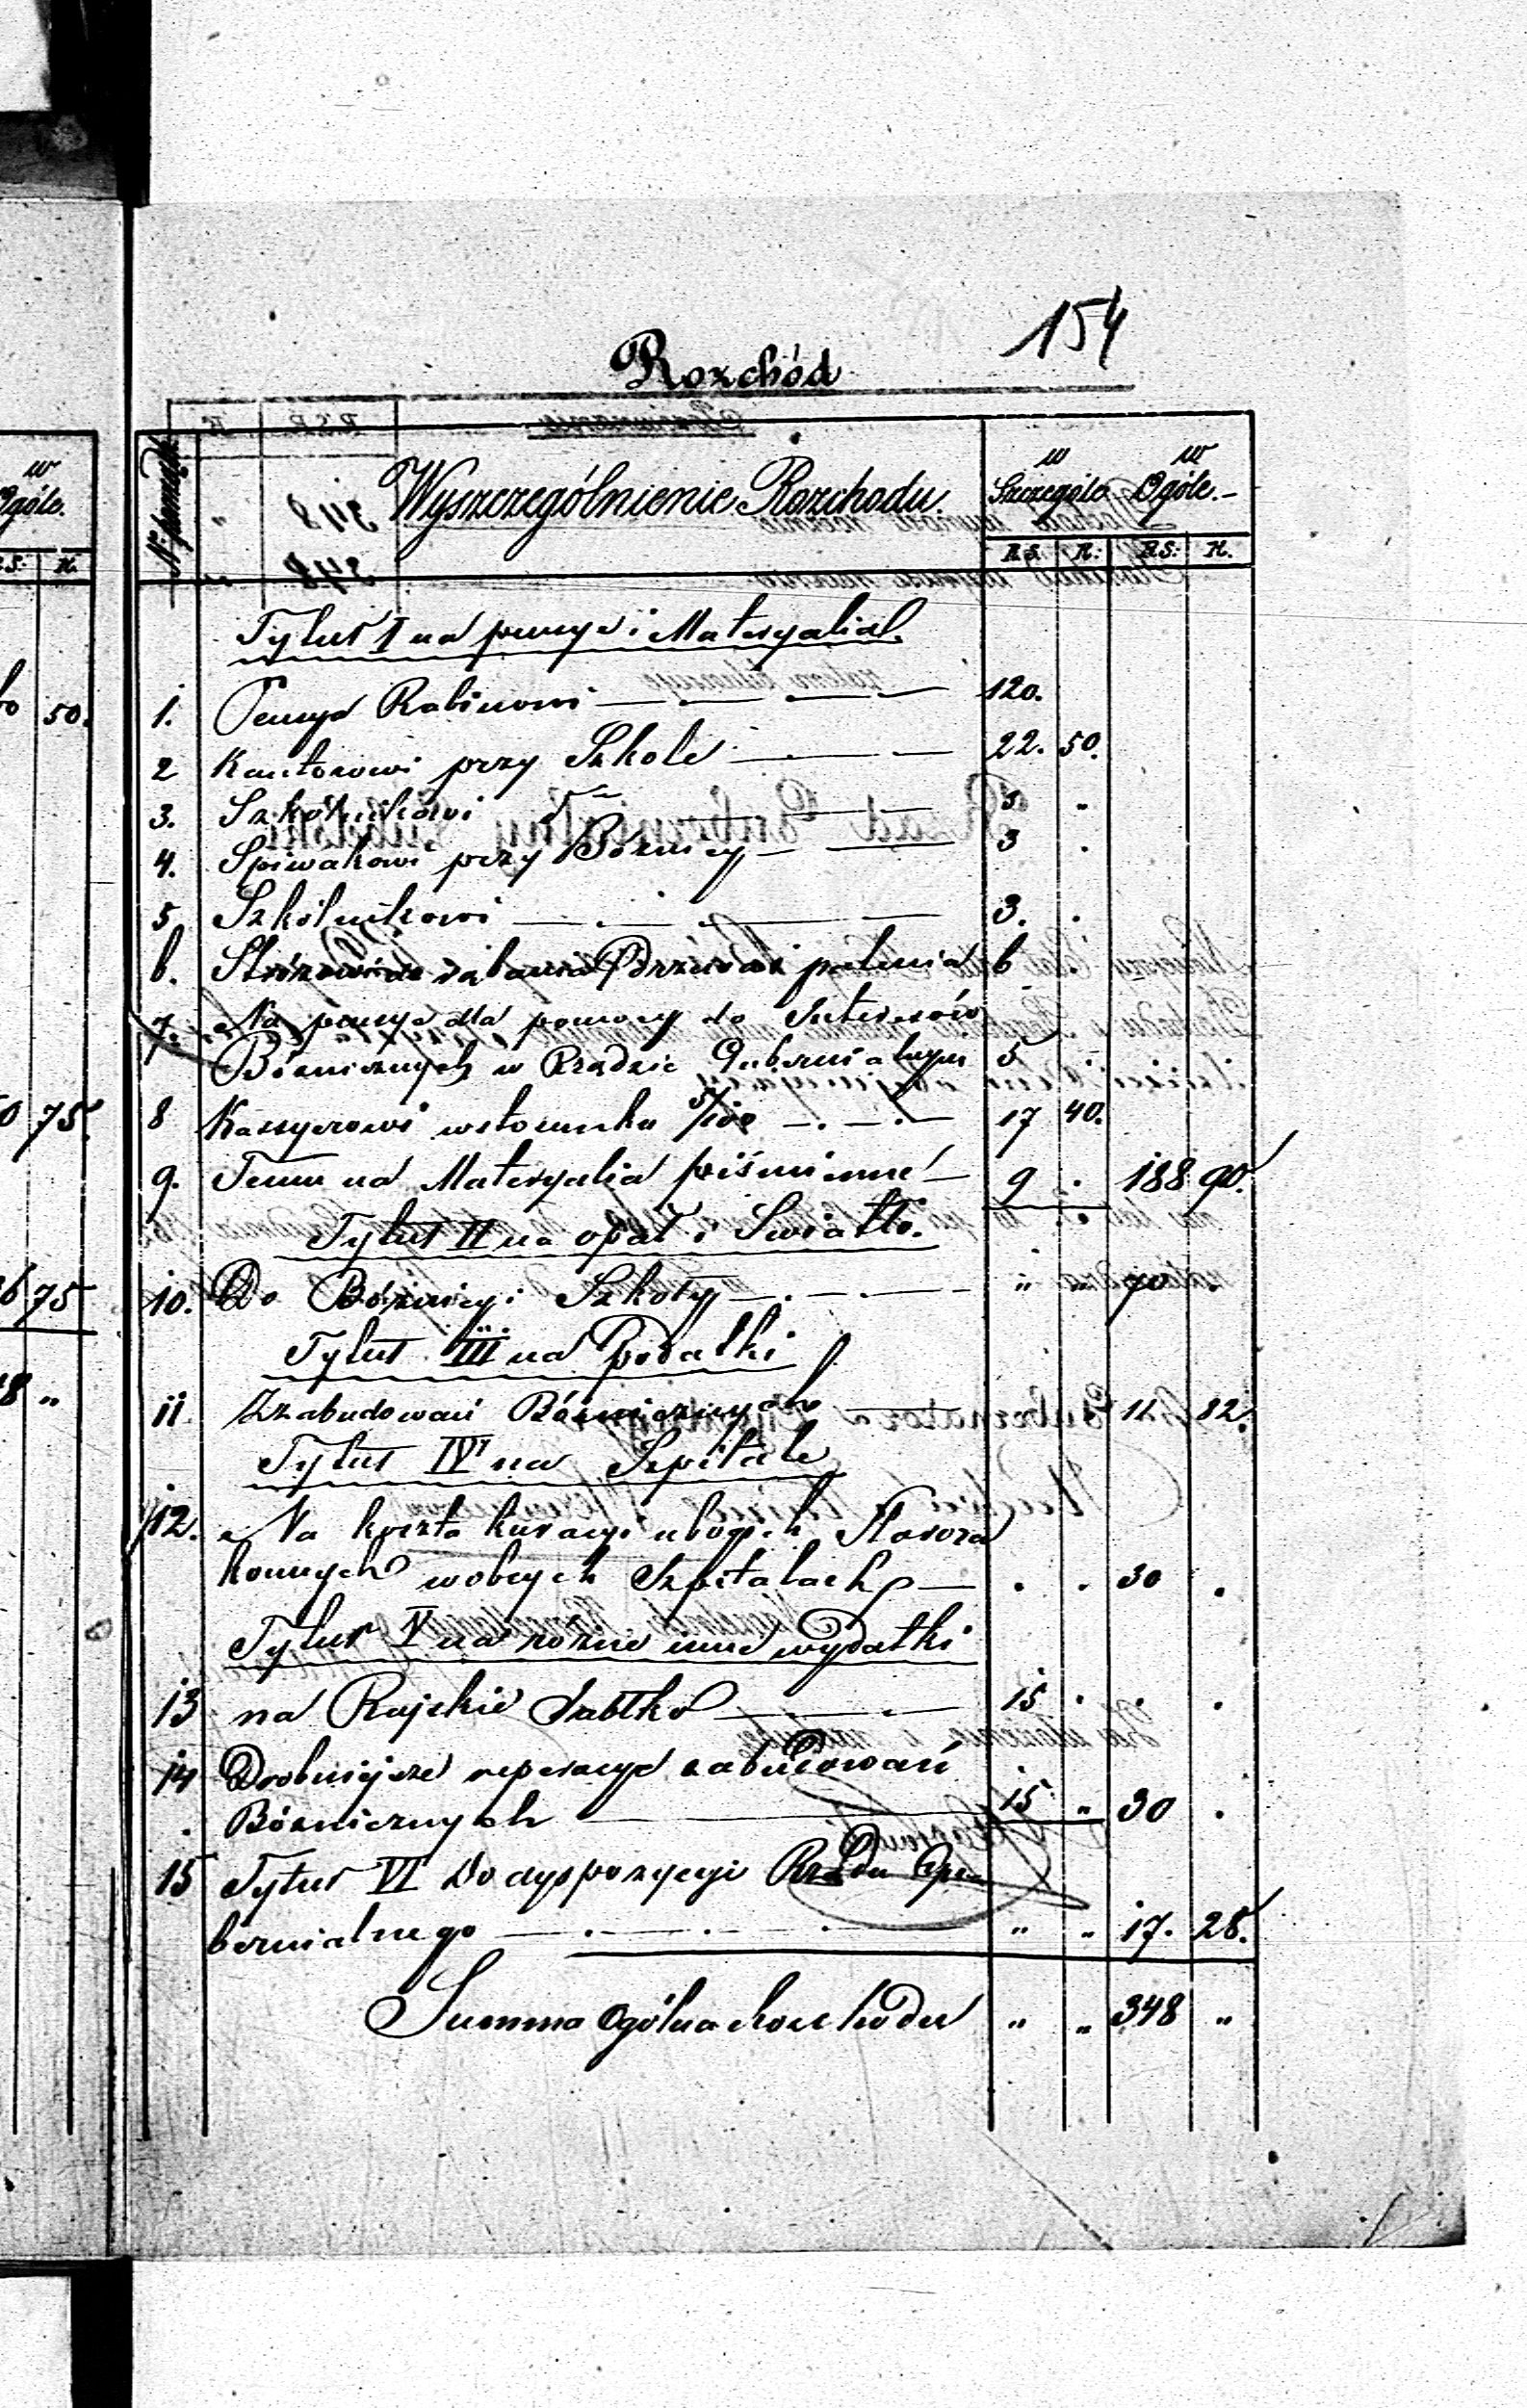 154
Rozchód
N: porządk. Wyszczególnienie Rozchodu. w Szczególe w Ogóle.
R.S. K: R.S: K.
Tytuł I na pensye i Materyalia.
1. Pensya Rabinowi 120.
2 Kantorowi przy Szkole 22. 50.
3. Szkólnikowi 3 "
4. Spiwakowi przy Bóznicy 3 .
5 Szkólnikowi 3. .
6. Stróżowi palenia 6 .
7. Na pensye dla pomocy do Interesów
Bózniczych w Rządzie Gubernialnym 5 .
8 Kassyerowi wstosunku 5/100 17 40.
9. Temu na Materyalia piśmienne 9 . 188 90.
Tytuł II na opał i Swiatło.
10. Do Bóżnicy i Szkoły " " 70 .
Tytuł III na Podatki
11 Zzabudowań Bózniczych 11 82.
Tytuł IV na Szpitale
12. Na koszta kuracyi ubogich Staroza
konnych wobcych Szpitalach . . 30 .
Tytuł V na rożne inne wydatki
13 na Rajskie Jabłko 15 . . .
14 Drobniejsze reperacye zabudowań
Bózniczych 15 " 30 .
15 Tytuł VI Do dyspozycyi Rządu Gu
bernialnego " " 17. 28.
Summa Ogólna Rozchodu " " 348 "
w
Ogóle.
R.S: K.
50.
75.
75
"